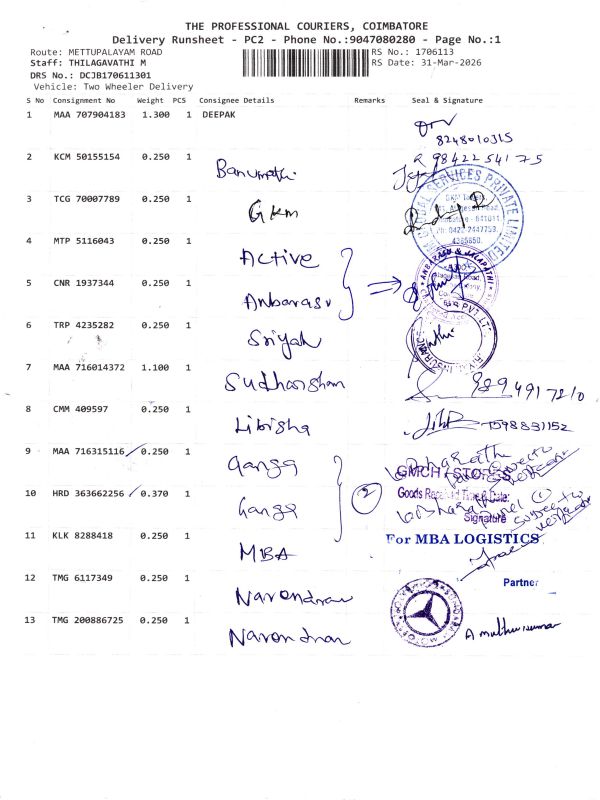 THE PROFESSIONAL COURIERS, COIMBATORE
Delivery Runsheet - PC2 - Phone No.:9047080280 - Page No.:1
Route: METTUPALAYAM ROAD RS No.: 1706113
Staff: THILAGAVATHI M RS Date: 31-Mar-2026
DRS No.: DCJB170611301
Vehicle: Two Wheeler Delivery
S No Consignment No Weight PCS Consignee Details Remarks Seal & Signature
1 MAA 707904183 1.300 1 DEEPAK
8248010315
2 KCM 50155154 0.250 1 Banumathi 98422 54175
3 TCG 70007789 0.250 1 Gkm
4 MTP 5116043 0.250 1 Active
5 CNR 1937344 0.250 1 Anbarasu
6 TRP 4235282 0.250 1 Sriyah
7 MAA 716014372 1.100 1 Sudharshan 9894917210
8 CMM 409597 0.250 1 Libisha 7598831152
9 MAA 716315116 0.250 1 Ganga
GMCH STORES
10 HRD 363662256 0.370 1 Ganga 2
Goods Received Time & Date:
Signature
11 KLK 8288418 0.250 1 MBA
For MBA LOGISTICS
Partner
12 TMG 6117349 0.250 1 Narendran
13 TMG 200886725 0.250 1 Narendran A muthukumar